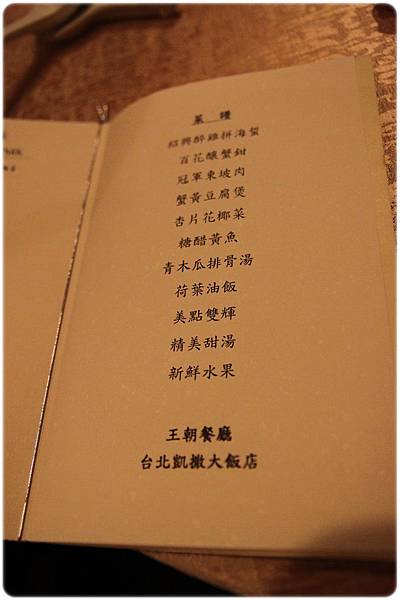 菜 譜
紹興醉雞拼海蜇
百花釀蟹鉗
冠軍東坡肉
蟹黃豆腐煲
杏片花椰菜
糖醋黃魚
青木瓜排骨湯
荷葉油飯
美點雙輝
精美甜湯
新鮮水果
王朝餐廳
台北凱撒大飯店